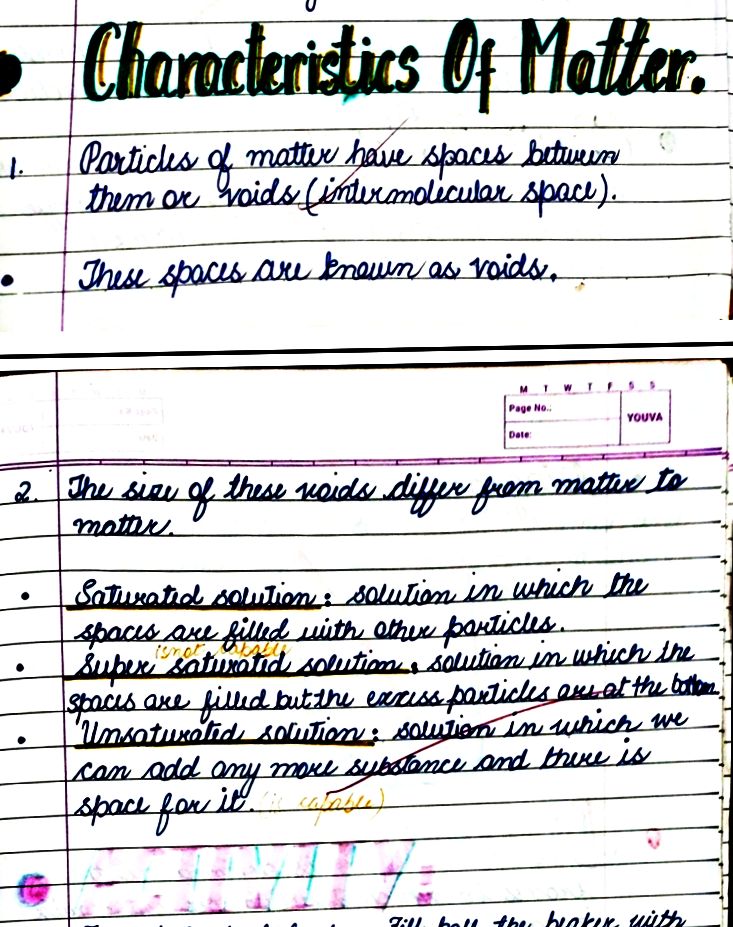 Characteristics Of Matter.
1. Particles of matter have spaces between
them or voids (intermolecular space).
• These spaces are known as voids.
M T W T F S S
Page No.:
YOUVA
Date:
2. The size of these voids differ from matter to
matter.
• Saturated solution: solution in which the
spaces are filled with other particles.
is not capable
• Super saturated solution: solution in which the
spaces are filled but the excess particles are at the bottom
• Unsaturated solution: solution in which we
can add any more substance and there is
space for it. (is capable)
ACTIVITY:
Fill half the beaker with